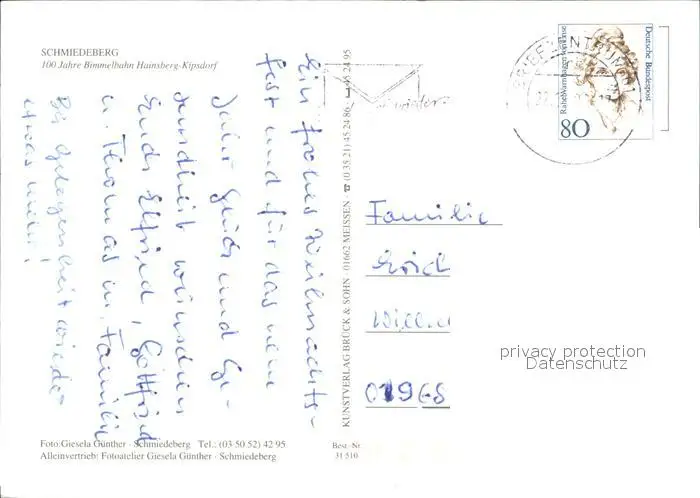 SCHMIEDEBERG
100 Jahre Bimmelbahn Hainsberg-Kipsdorf
Ein frohes Weihnachts-
fest und für das neue
Jahr Glück und Ge-
sundheit wünschen
Euch Elfried, Gottfried
u. Thomas m. Familie
Bei Gelegenheit wieder
etwas mehr!
KUNSTVERLAG BRÜCK & SOHN · 01662 MEISSEN · ☎ (0 35 21) 45 24 86 · 45 24 95
BRIEFZENTRUM
Deutsche Bundespost
Rahel Varnhagen von Ense
80
Familie
Erich
01968
privacy protection
Datenschutz
Foto: Giesela Günther · Schmiedeberg Tel.: (03 50 52) 42 95
Alleinvertrieb: Fotoatelier Giesela Günther · Schmiedeberg
Best.-Nr.
31 510